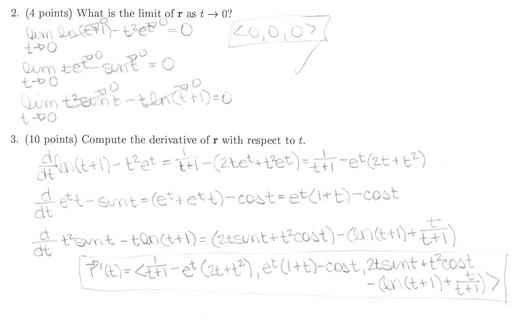 2. (4 points) What is the limit of r as t → 0?
lim ln(t+1) - t²e^t = 0 <0, 0, 0>
t→0
lim te^t - sin t = 0
t→0
lim t² sin t - t ln(t+1) = 0
t→0
3. (10 points) Compute the derivative of r with respect to t.
d/dt ln(t+1) - t²e^t = 1/(t+1) - (2te^t + t²e^t) = 1/(t+1) - e^t(2t+t²)
d/dt e^t t - sin t = (e^t + e^t t) - cos t = e^t(1+t) - cos t
d/dt t² sin t - t ln(t+1) = (2t sin t + t² cos t) - (ln(t+1) + t/(t+1))
r'(t) = <1/(t+1) - e^t(2t+t²), e^t(1+t) - cos t, 2t sin t + t² cos t
- (ln(t+1) + t/(t+1))>